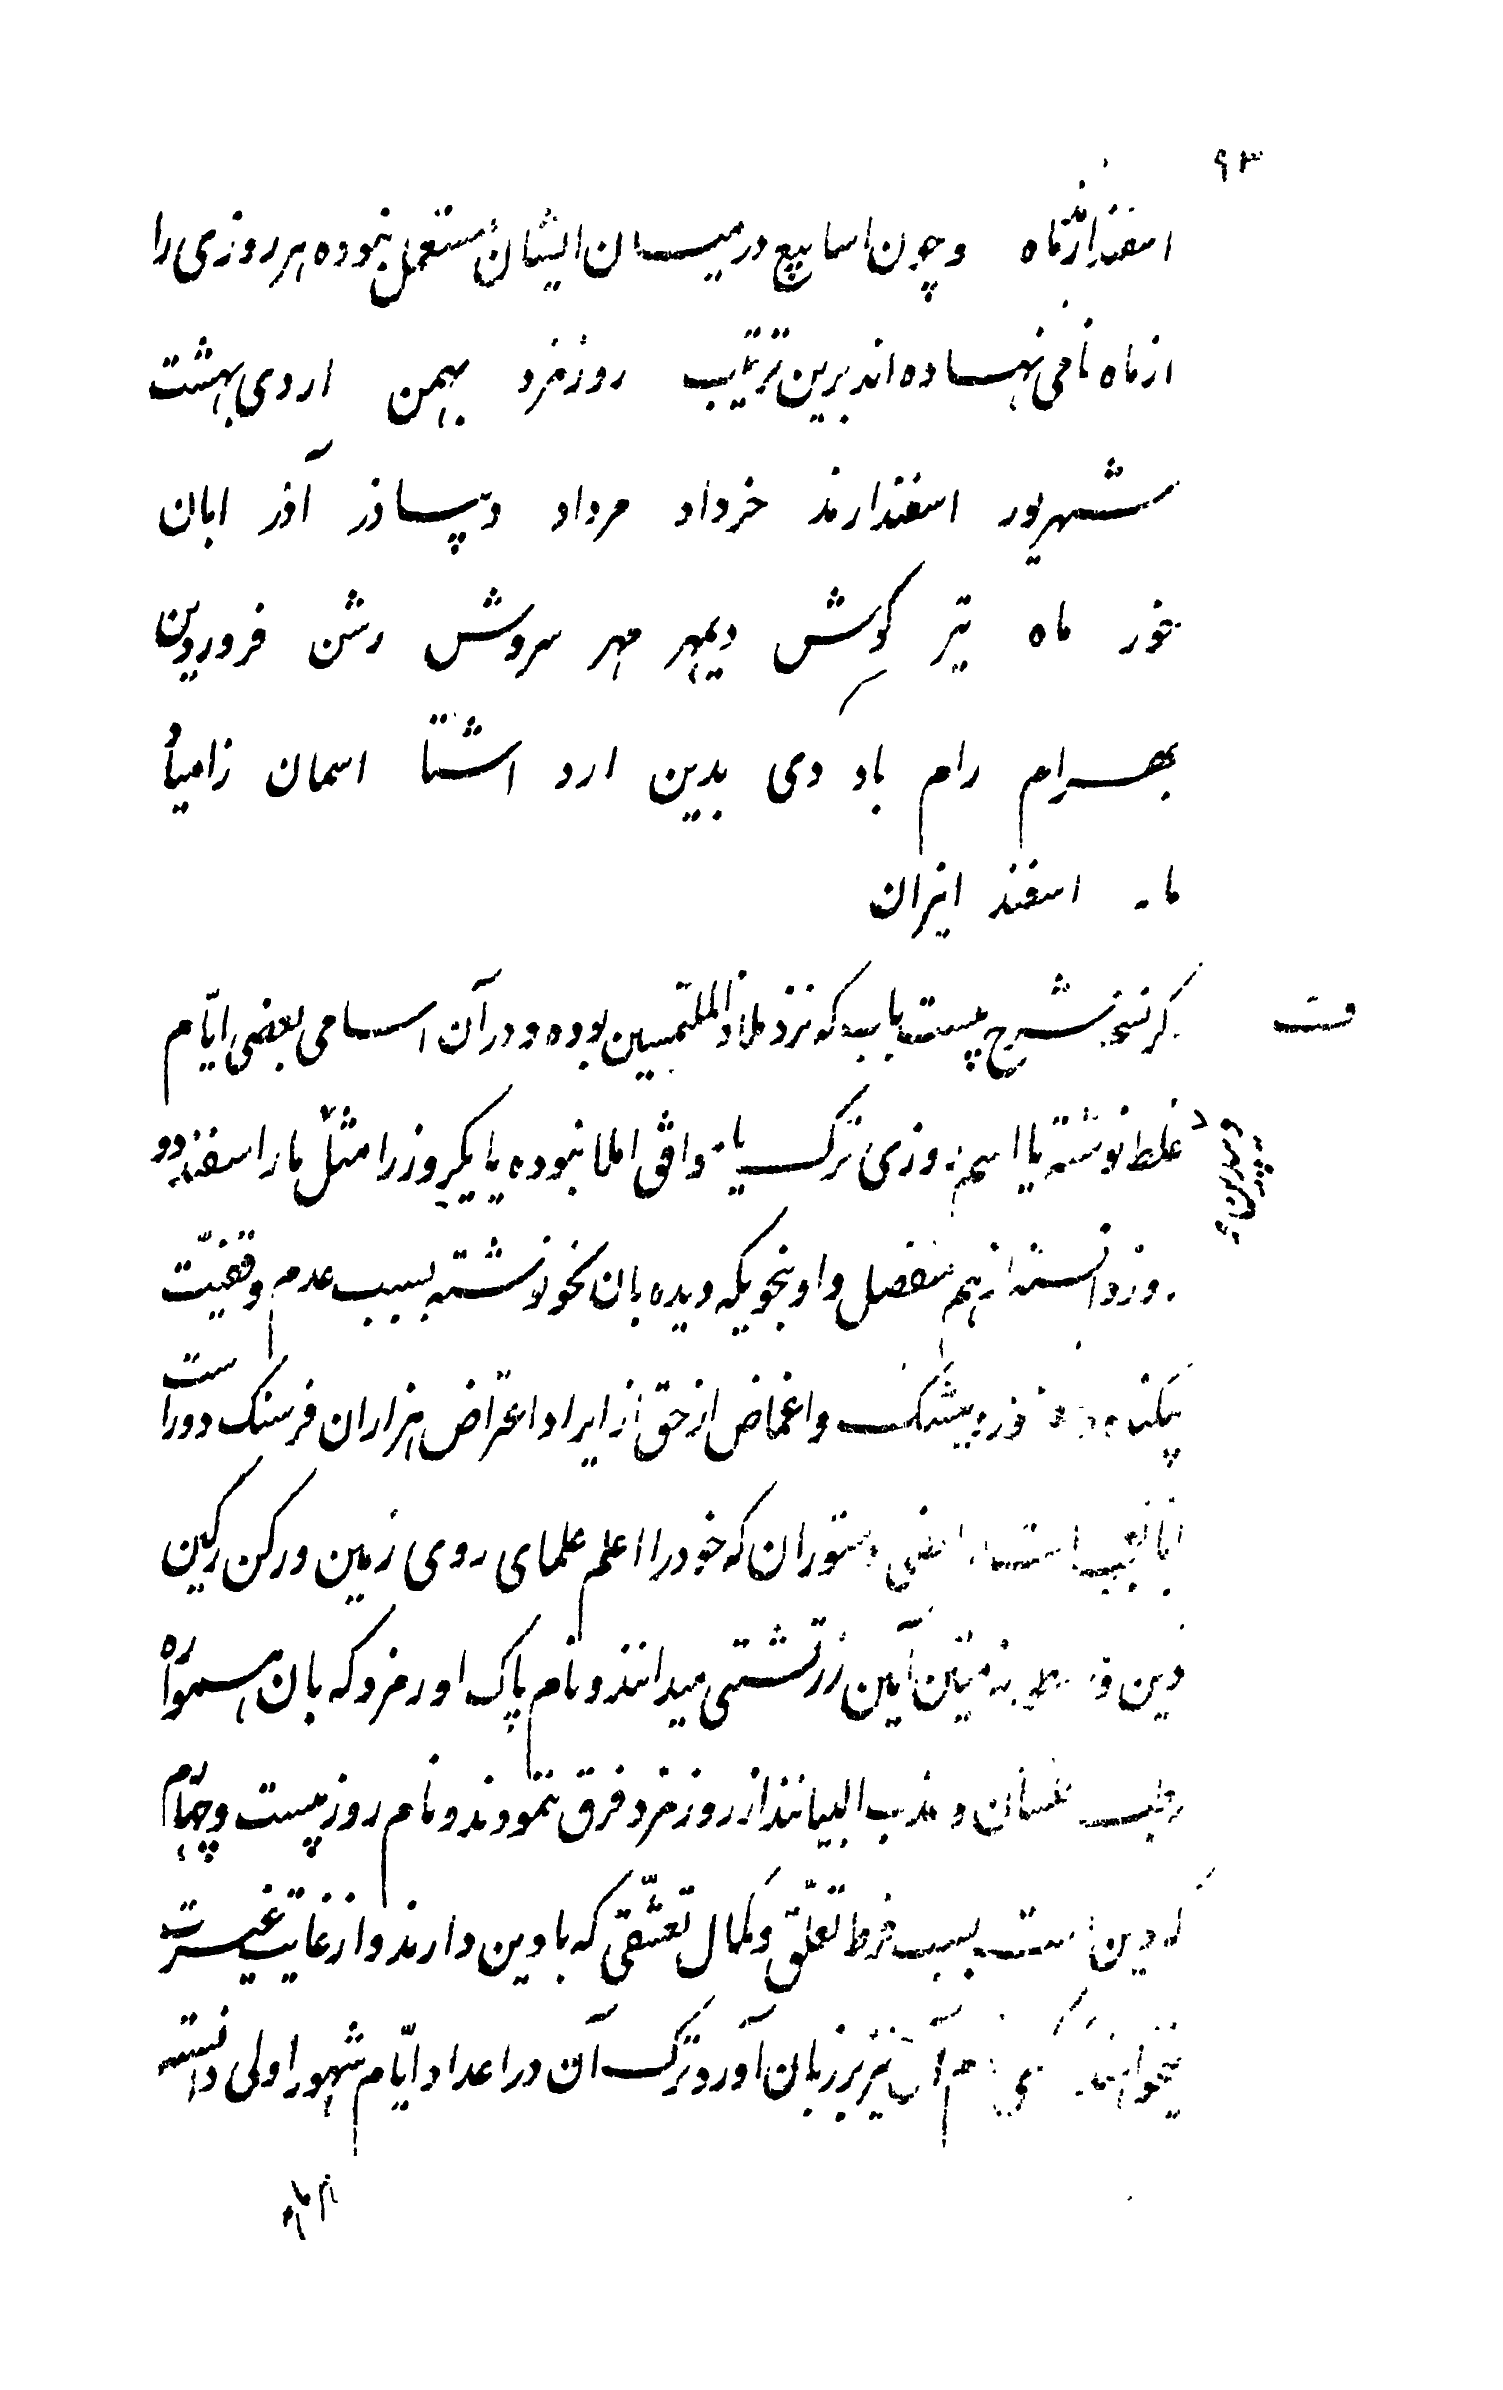 ۹۳
اسفندارمذماه وچون اسابیع درمیان ایشان مستعمل نبوده هر روزی را
از ماه نامی نهاده اند برین ترتیب روزمزد بهمن اردی بهشت
شهریور اسفندارمذ خرداد مرداد دیباذر آذر ابان
خور ماه تیر کوش دیمهر مهر سروش رشن فروردین
بهرام رام باد دی بدین ارد اشتا اسمان زامیاد
ما اسفند انیران
کر نسخه شرح بیست باب که نزد ملاذ الملتمسین بوده و درآن اسامی بعضی ایّام
غلط نوشته یا اسم روزی ترک یا موافق املا نبوده یا یکروز را مثل ماراسفند دو
روز دانسته از هم منفصل و او بنحویکه دیده بان نحو نوشته بسبب عدم وقفیّت
واغماض از حق از ایراد اعتراض هزاران فرسنک دور است
امّا تعجب است دستوران که خود را اعلم علمای روی زمین و رکن رکین
دین متین آیین زرتشتی میدانند و نام پاک اورمزد که بان همواره
رطب اللسان و عذب البیانند از روزمزد فرق ننموده و نام روز بیست وچهارم
که دین است بسبب فرط تعلّق و کمال تعشّقی که با دین دارند و از غایت غیرت
نیز بر زبان آورد ترک آن در اعداد ایّام شهور اولی دانسته